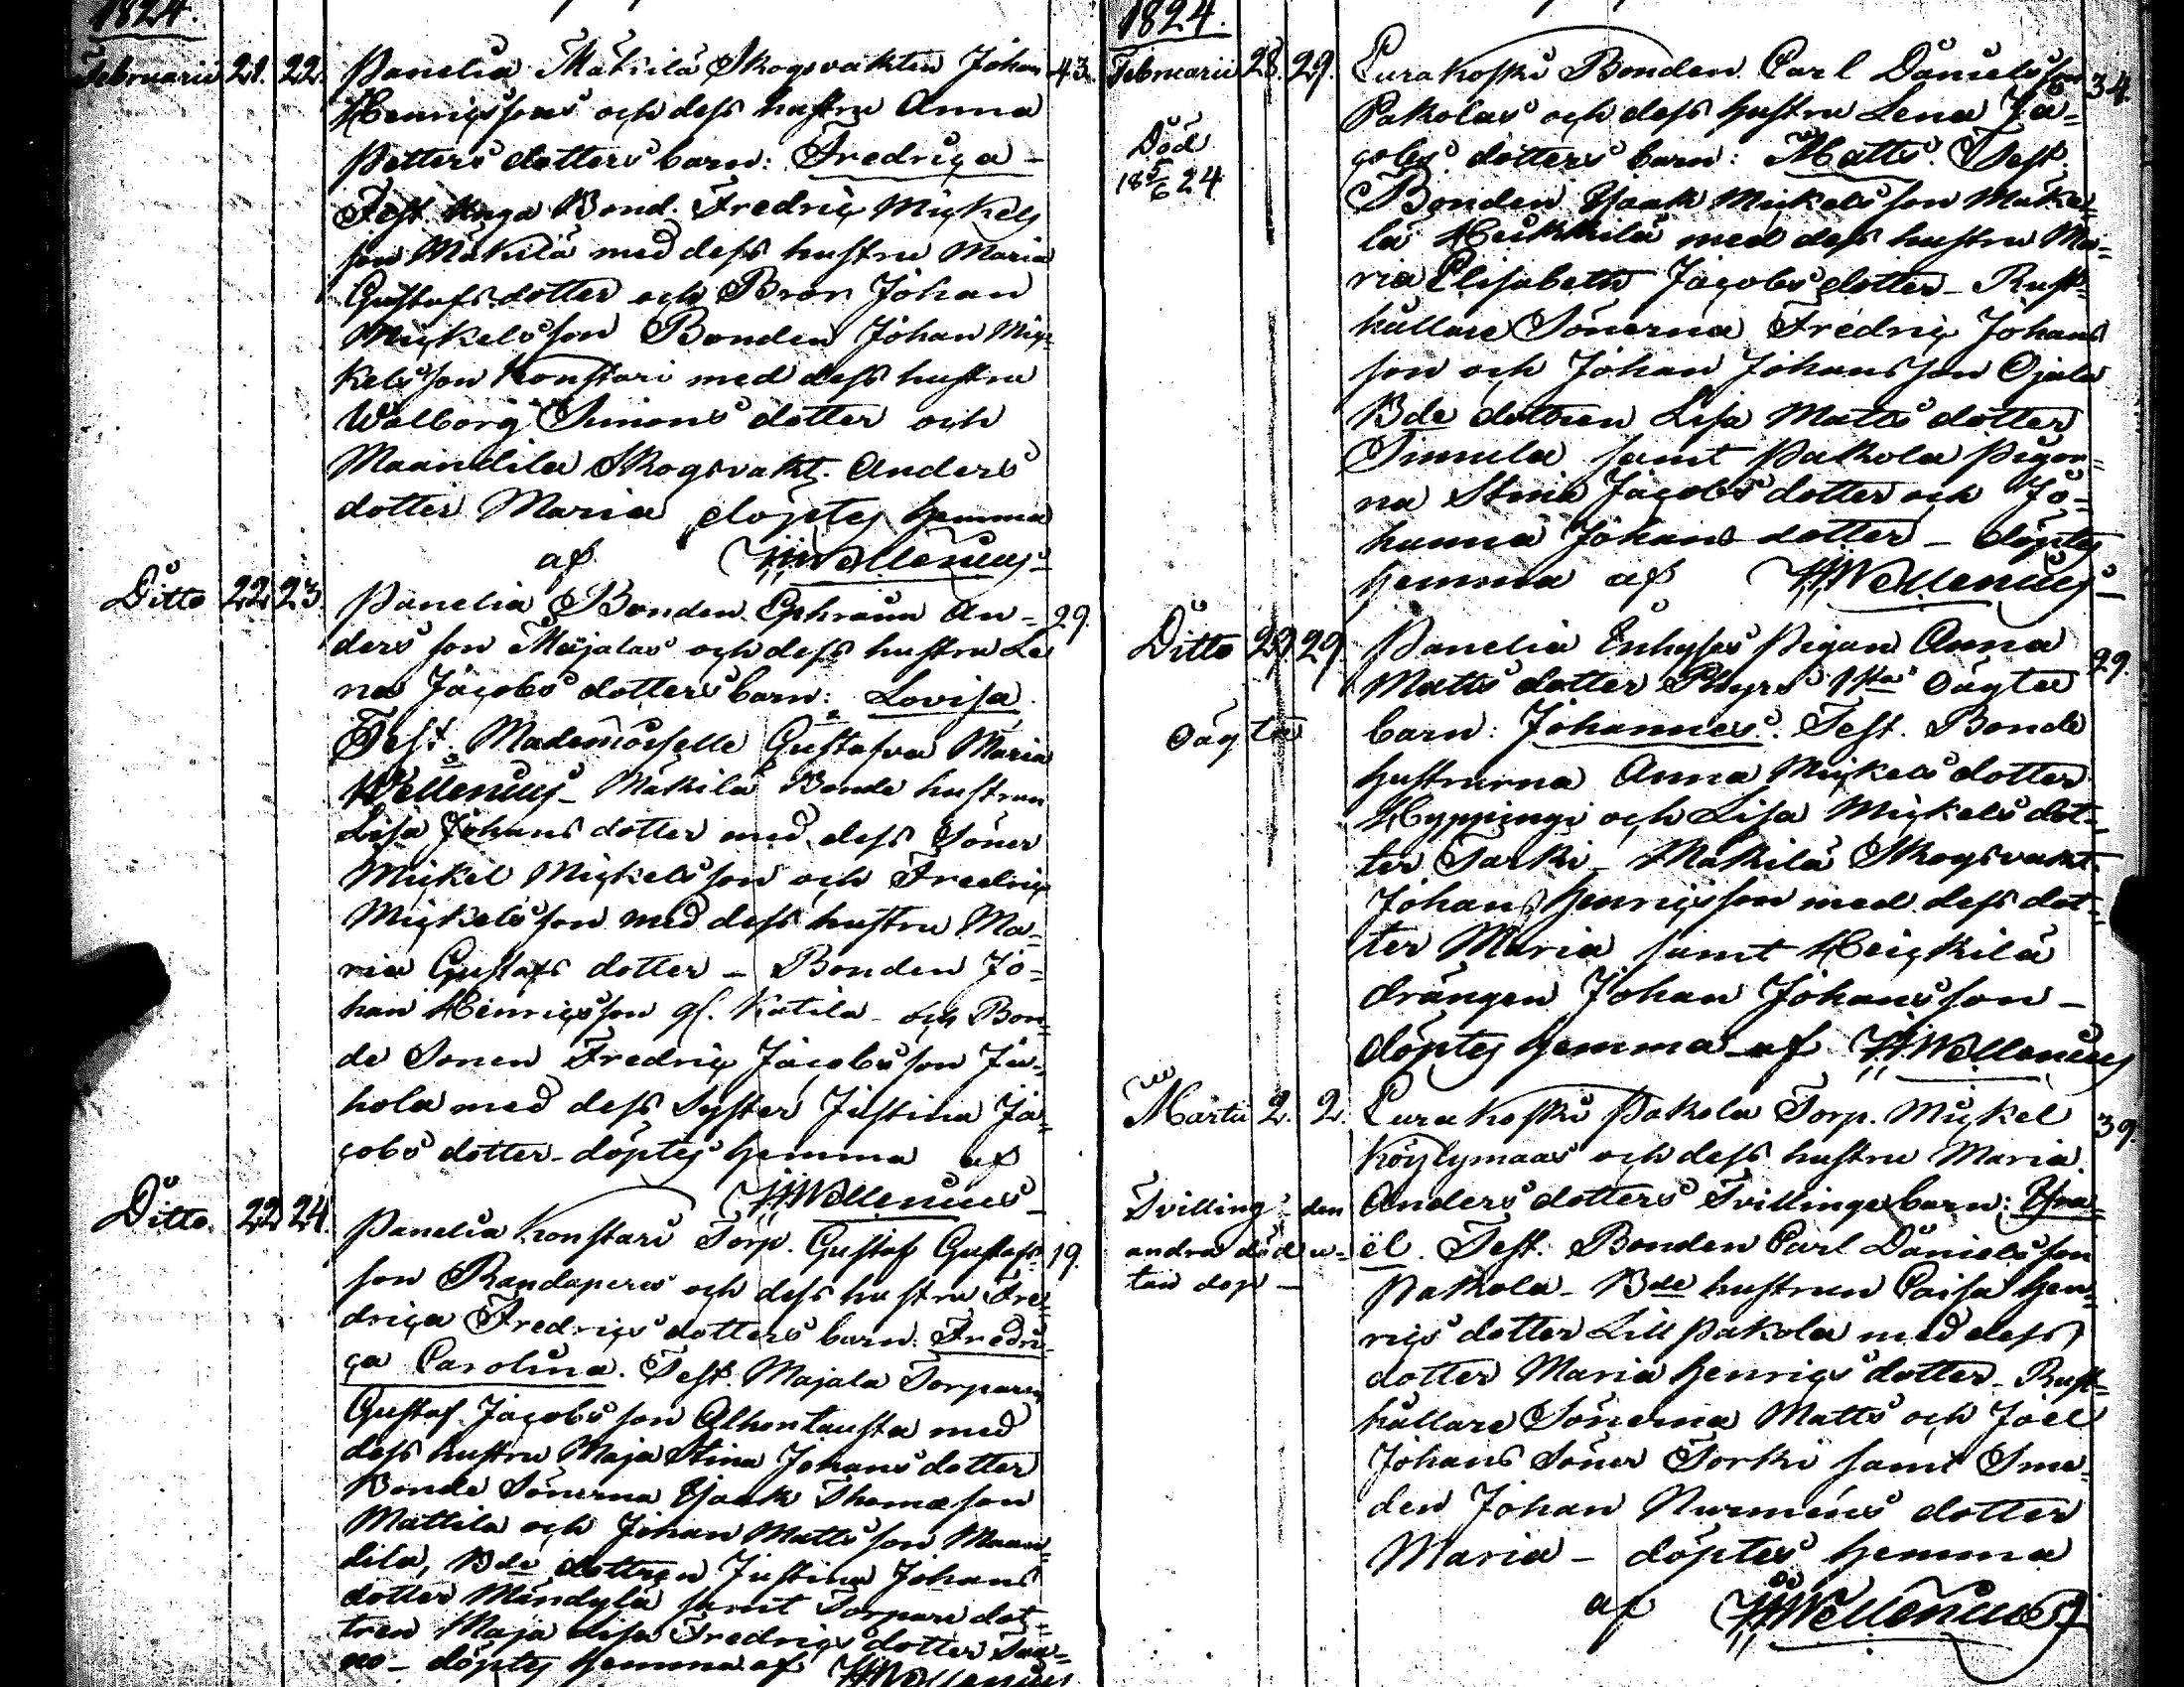 1824.
Februarii 21. 22. Panelia Mäkilä Skogsvakten Johan 43.
Henricssons och dess hustru Anna
Petters dotters barn: Fredrica -
Test. unga Bond. Fredric Mickels
son Mäkilä med dess hustru Maria
Gustafs dotter och Bror Johan
Mickelsson Bonden Johan Mic-
kelsson Konstari med dess hustru
Walborg Simons dotter och
Maandila Skogsvakt. Anders
dotter Maria döptes hemma
af HWellenius
Ditto 22 23. Panelia Bonden Ephraim An- 29.
ders son Majalas och dess hustru Le
na Jacobs dotters barn: Lovisa.
Test. Mademoiselle Gustafva Maria
Wellenius - Mäkilä Bonde hustrun
Lisa Johans dotter med dess Söner
Mickel Mickelsson och Fredric
Mickelsson med dess hustru Ma-
ria Gustafs dotter - Bonden Jo-
han Henricsson gl. Katila - och Bon-
de Sonen Fredric Jacobsson Ju-
hola med dess Syster Justina Ja-
cobs dotter - döptes hemma af
HWellenius
Ditto. 22 24. Panelia Konstari Torp. Gustaf Gustafs- 19.
son Randaperes och dess hustru Fre-
drica Fredrics dotters barn. Fredri-
ca Carolina. Test. Majala Torparen
Gustaf Jacobsson Alhontausta med
dess hustru Maja Stina Johans dotter
Bonde Sönerna Isaak Thomasson
Mattila och Johan Mattsson Maan-
dila, Bde dottren Justina Johans
dotter Mändylä samt Torpare dot-
tren Maja Lisa Fredrics dotter
- döptes hemma af HWellenius
1824.
Februarii 28. 29. Eurakoski Bonden Carl Danielsson 34.
Pakolas och dess hustru Lena Ja-
cobs dotters barn: Matts. Test.
Död
18 5/6 24
Bonden Isaak Mickelsson Mäke-
lä Heikkilä med dess hustru Ma-
ria Elisabeth Jacobs dotter - Rust-
hållare Sönerna Fredric Johans
son och Johan Johansson Ojala
Bde dottren Lisa Matts dotter
Simula samt Pakola Pigor-
na Stina Jacobs dotter och Jo-
hanna Johans dotter - döptes
hemma af HWellenius -
Ditto 29. 29. Panelia Enhyses Pigan Anna 29.
Matts dotter 1sta oägta
oägta barn: Johannes. Test. Bonde
hustrurna Anna Mickels dotter
Hyppingi och Lisa Mickels dot-
ter Sarki - Mäkilä Skogsvakt.
Johan Henricsson med dess dot-
ter Maria samt Heickilä
drängen Johan Johansson -
döptes hemma af HWellenius
Martii 2. 2. Eurakoski Pakola Torp. Mickel 39.
Köylymaas och dess hustru Maria
Tvilling - den Anders dotters Tvillinge barn: Isra-
andra död u- ël. Test. Bonden Carl Danielsson
tan dop - Pakola - Bde hustrun Caisa Hen-
rics dotter Lill Pakola med dess
dotter Maria Henrics dotter - Rust-
hållare Sönerna Matts och Joel
Johans Söner Sorki samt Sme-
den Johan Nurmens dotter
Maria - döptes hemma
af HWellenius